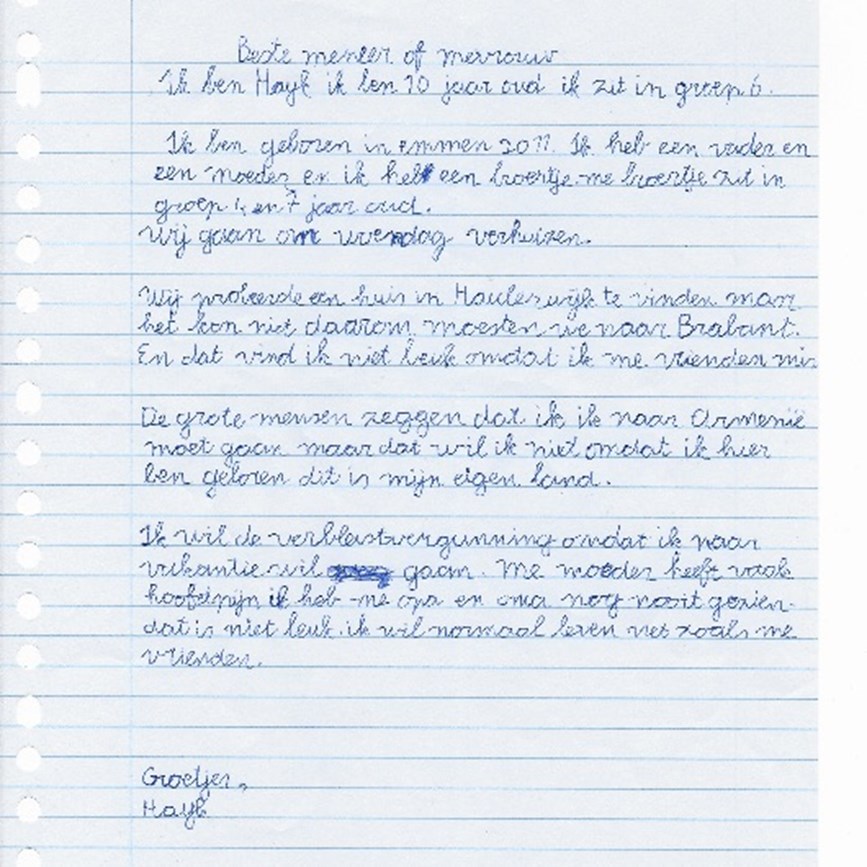 Beste meneer of mevrouw
Ik ben Hayk ik ben 10 jaar oud ik zit in groep 6.
Ik ben geboren in emmen 2011. Ik heb een vader en
een moeder en ik heb een broertje me broertje zit in
groep 4 en 7 jaar oud.
Wij gaan om woendag verhuizen.
Wij probeerde een huis in Haulerwijk te vinden maar
het kon niet daarom moesten we naar Brabant.
En dat vind ik niet leuk omdat ik me vrienden mis
De grote mensen zeggen dat ik ik naar Armenië
moet gaan maar dat wil ik niet omdat ik hier
ben geboren dit is mijn eigen land.
Ik wil de verblestvergunning omdat ik naar
vakantie wil gaan. Me moeder heeft vaak
hoofdpijn ik heb me opa en oma nog nooit gezien.
dat is niet leuk. ik wil normaal leven net zoals me
vrienden.
Groetjes,
Hayk